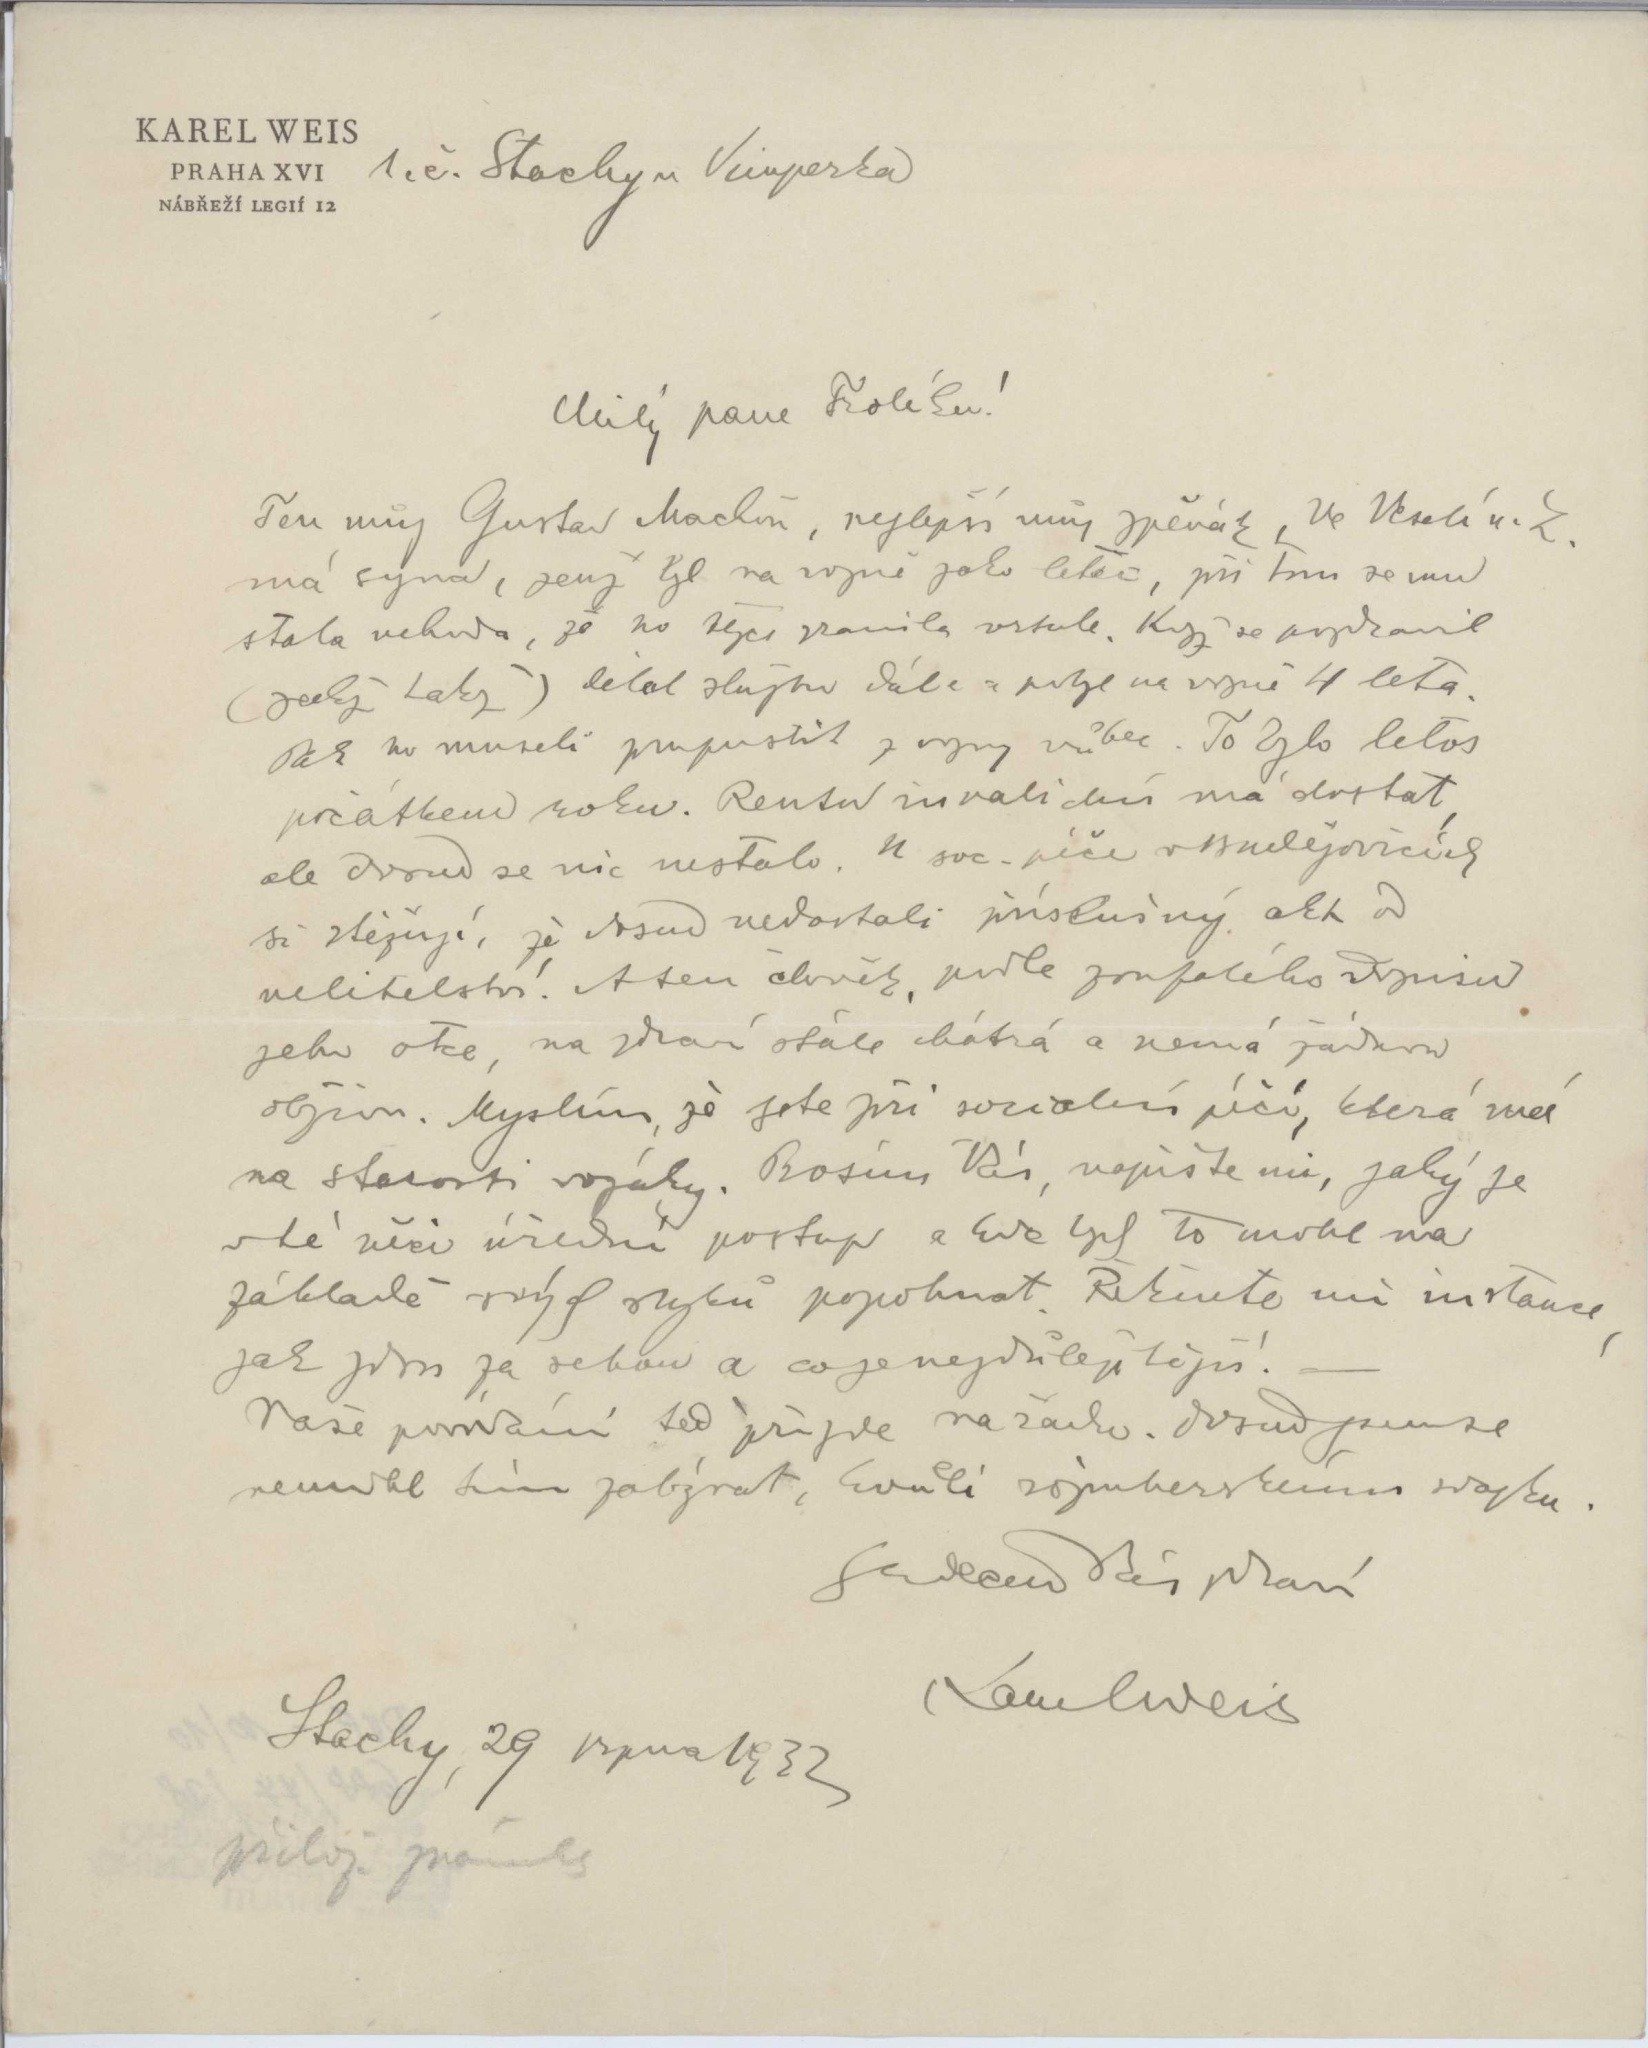 KAREL WEIS
PRAHA XVI
NÁBŘEŽÍ LEGIÍ 12
t. č. Stachy u Vimperka
Milý pane Frolíku!
Ten můj Gustav Machoň, nejlepší můj zpěvák, ve Veselí n. L.
má syna, jenž byl na vojně jako letec, při tom se mu
stala nehoda, že ho těžce zranila vrtule. Když se pozdravil
(jakž takž) dělal službu dále a pobyl na vojně 4 léta.
Pak ho museli propustit z vojny vůbec. To bylo letos
počátkem roku. Rentu invalidní má dostat,
ale dosud se nic nestalo. U soc. péče v Budějovicích
si stěžují, že dosud nedostali příslušný akt od
velitelství. A ten člověk, podle zoufalého dopisu
jeho otce, na zdraví stále chátrá a nemá žádnou
obživu. Myslím, že jste při sociální péči, která má
na starosti vojáky. Prosím Vás, napište mi, jaký je
v té věci úřední postup a kde bych to mohl na
základě svých styků popohnat. Řekněte mi instance,
jak jdou za sebou a co je nejdůležitější. —
Vaše povídání teď přijde na řadu. Dosud jsem se
nemohl tím zabývat, kvůli rožmberskému svazku.
Srdečně Vás zdraví
Karel Weis
Stachy, 29 srpna 1932
přilož.